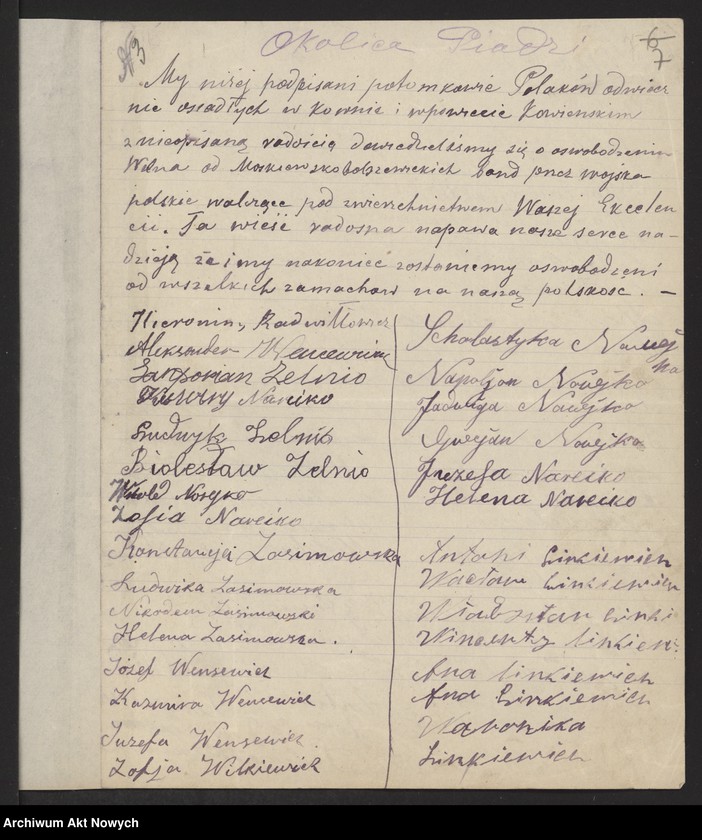 N 3
Okolica Piadzi
6
7
My niżej podpisani potomkowie Polaków odwiecz
nie osiadłych w Kownie i wpowiecie Kowieńskim
z nieopisaną radością dowiedzieliśmy się o oswobodzeniu
Wilna od Moskiewskobolszewickich band przez wojska
polskie walczące pod zwierzchnictwem Waszej Excelen
cii. Ta wieść radosna napawa nasze serce na-
dzieją że i my nakoniec zostaniemy oswobodzeni
od wszelkich zamachów na naszą polskość. —
Hieronim
Aleksander
Zelnio
Nareiko
Ludwyk Zelnio
Bolesław Zelnio
Witold
Zofia Nareiko
Konstancja Zasimowska
Ludwika Zasimowska
Nikodem Zasimowski
Helena Zasimowska.
Józef Wensewicz
Kazimira Wencewicz
Juzefa Wensewicz.
Zofja Witkiewicz
Scholastyka
Napoljon Nowejko
Jadwiga Nowejko
Nowejko
Juzefa Nareiko
Helena Nareiko
Antoni Linkiewich
Wacław Linkiewich
Linki
Wincenty Linkien
Ana Linkiewich
Ana Linkiewich
Waronika
Linkiewich
Archiwum Akt Nowych